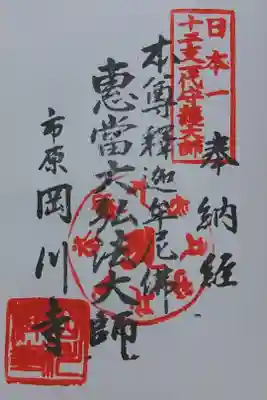 日本一
十二支一代守護大師
奉納経
本尊釋迦牟尼佛
恵當大弘法大師
市原
岡川寺